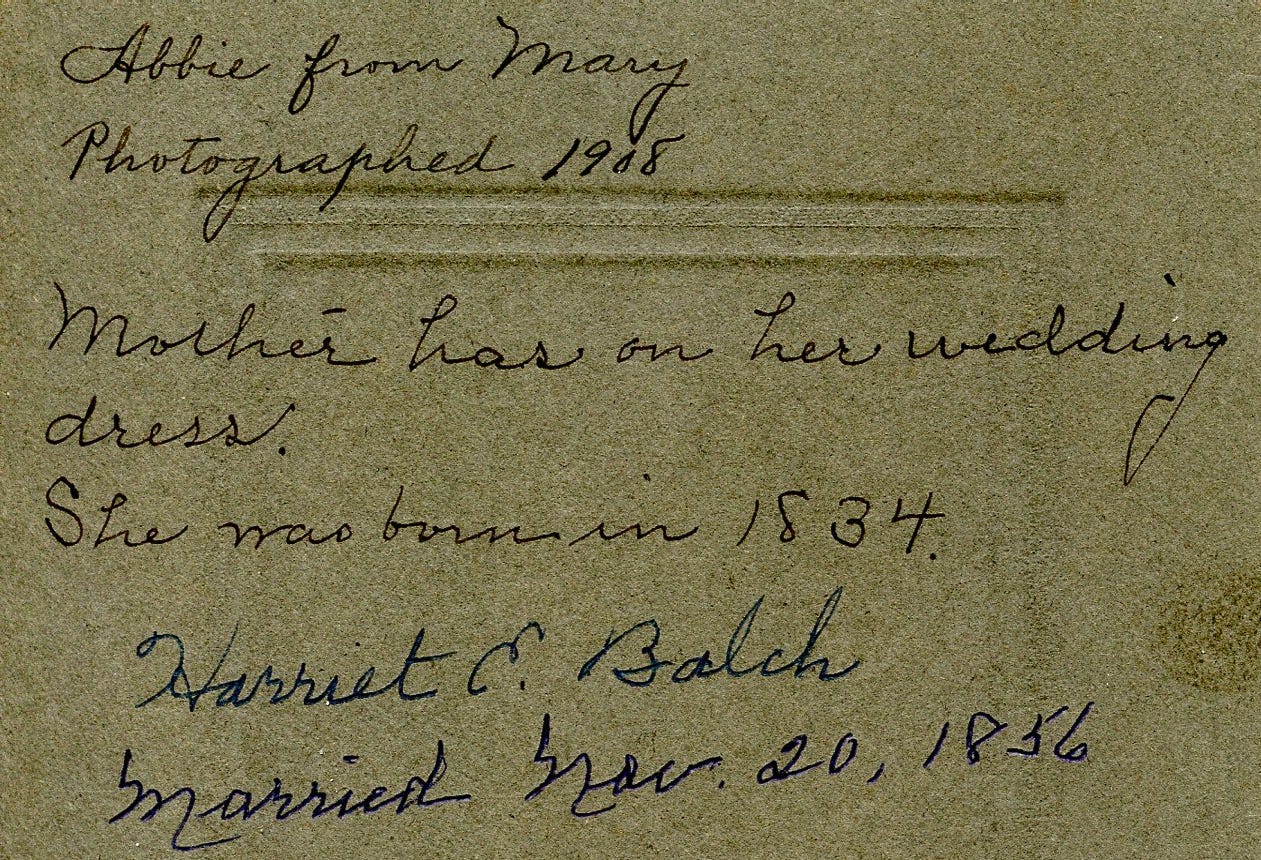 Abbie from Mary
Photographed 1908
Mother has on her wedding
dress.
She was born in 1834.
Harriet E. Balch
Married Nov. 20, 1856